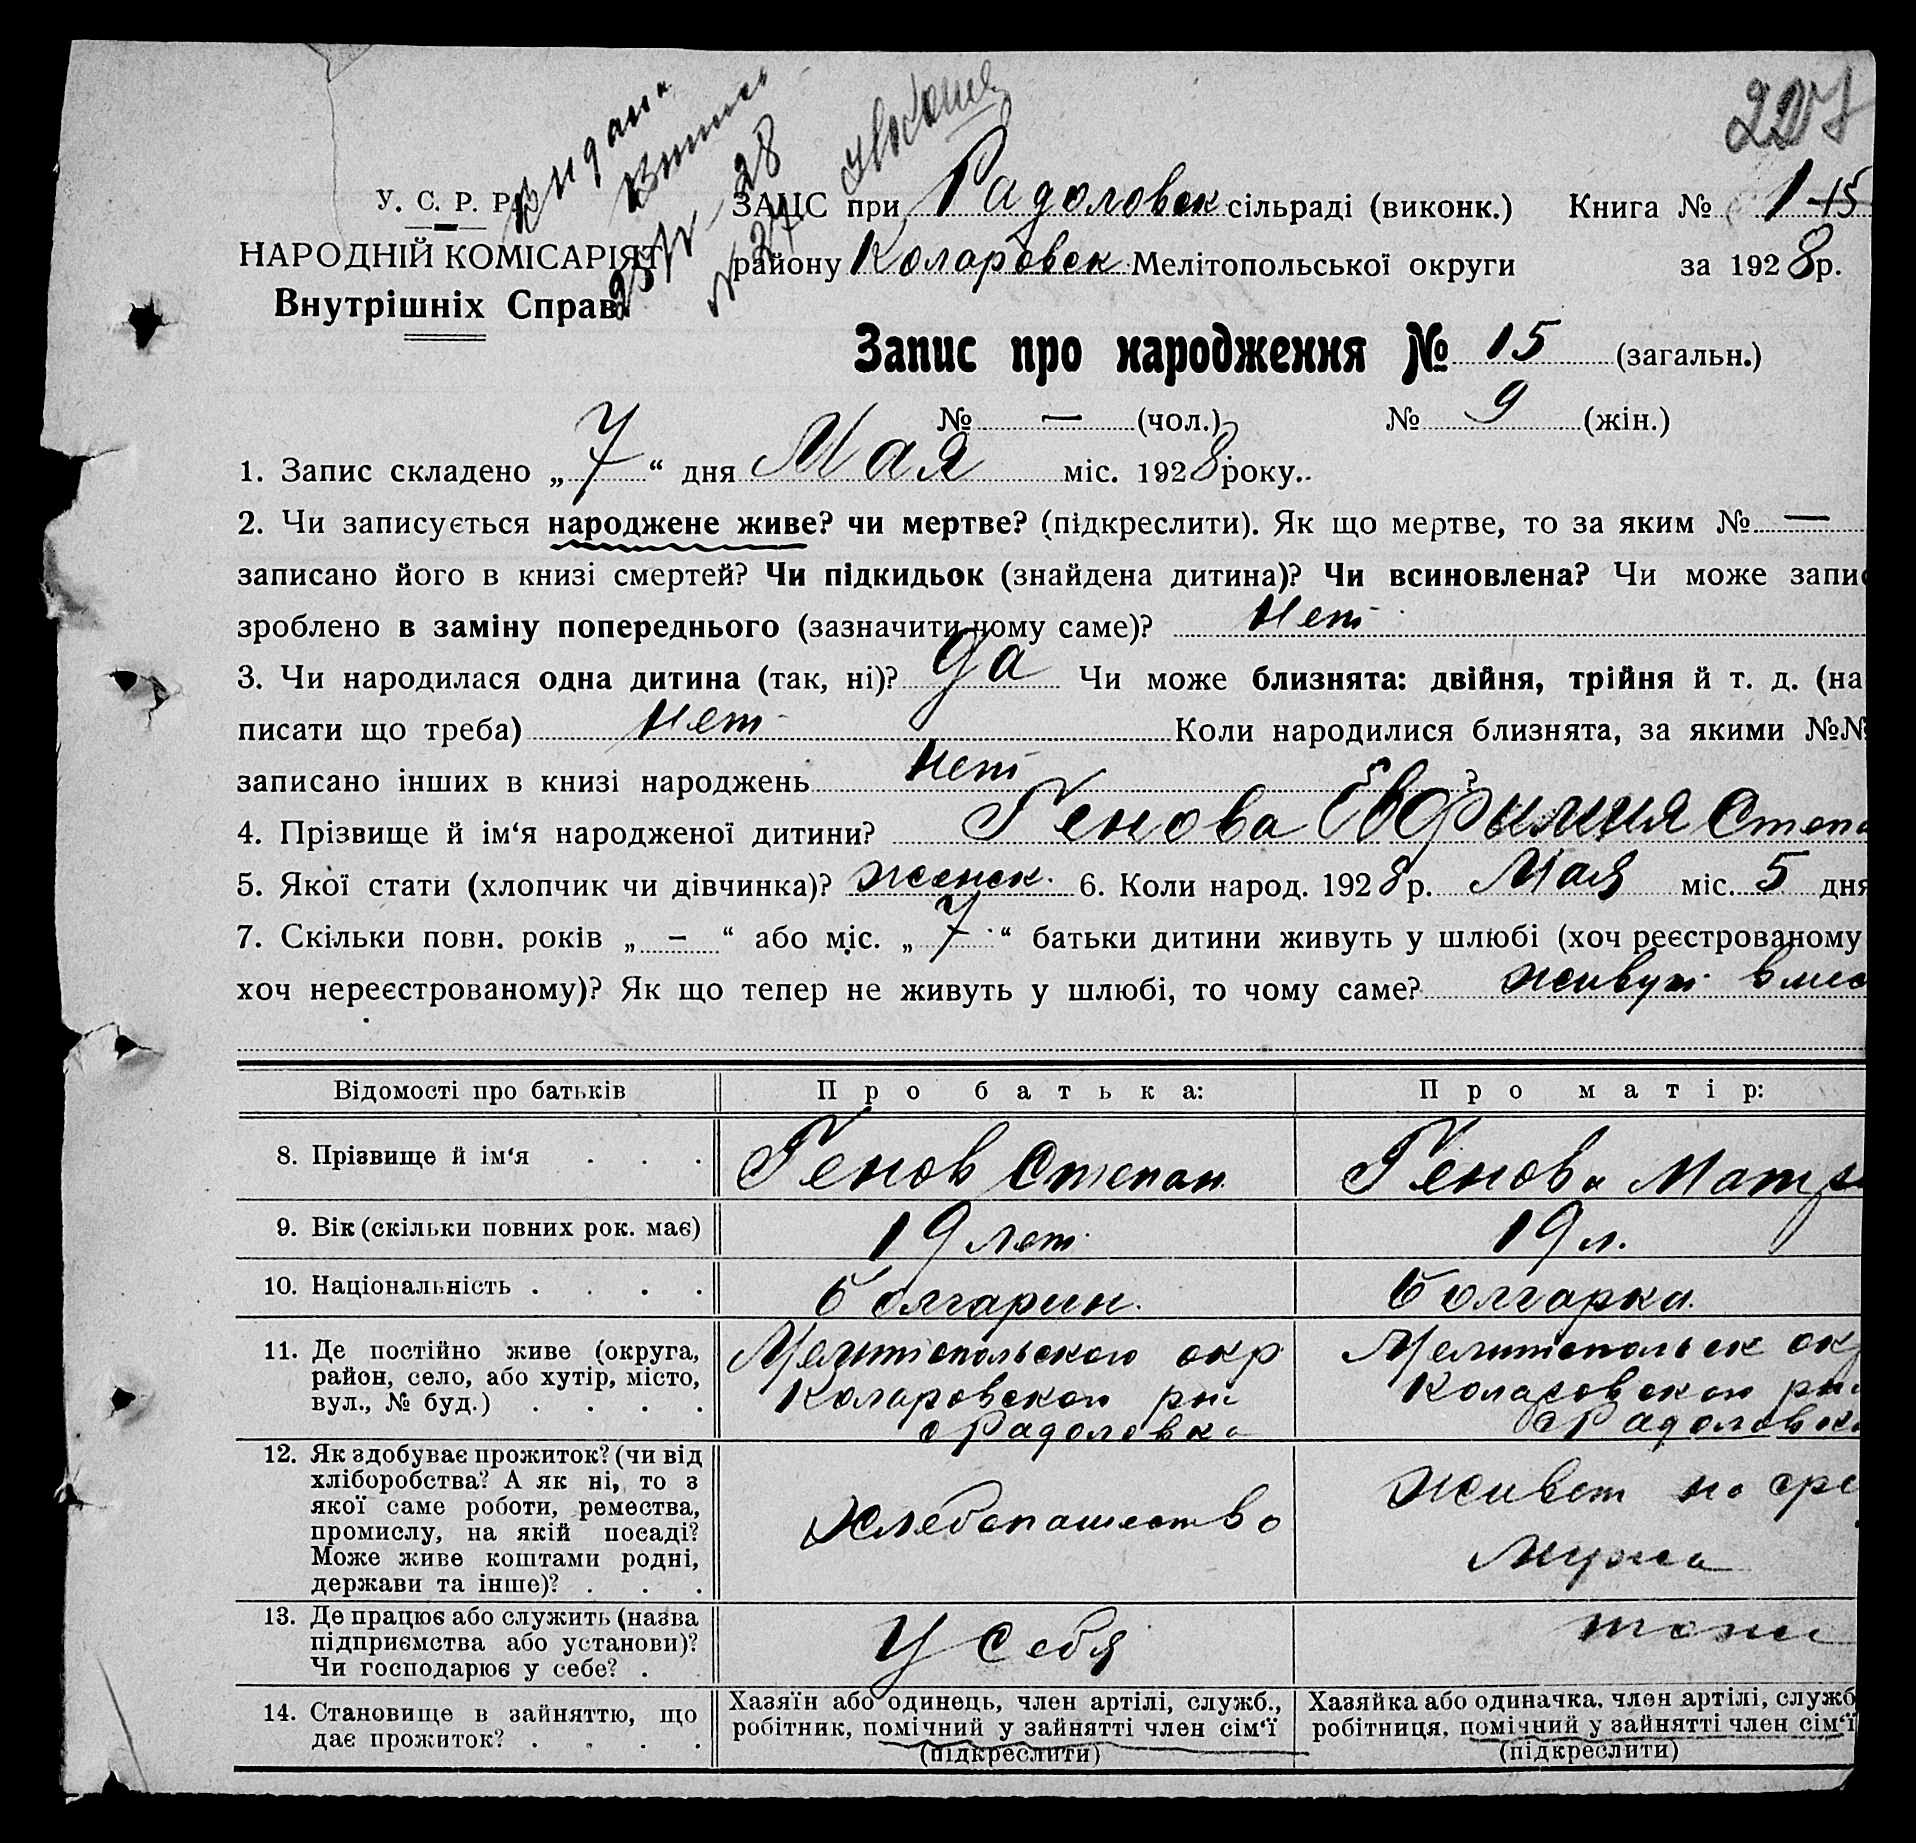 227
Видана
Выпись
28
№ 27
У. С. Р. Р.
НАРОДНІЙ КОМІСАРІЯТ
Внутрішніх Справ
ЗАЦС при Радоловск сільраді (виконк.) Книга № 1-15
району Коларовск Мелітопольської округи за 1928 р.
Запис про народження № 15 (загальн.)
№ — (чол.) № 9 (жін.)
1. Запис складено „7“ дня Мая міс. 1928 року..
2. Чи записується народжене живе? чи мертве? (підкреслити). Як що мертве, то за яким № —
записано його в книзі смертей? Чи підкидьок (знайдена дитина)? Чи всиновлена? Чи може запис
зроблено в заміну попереднього (зазначити чому саме)? Нет
3. Чи народилася одна дитина (так, ні)? Да Чи може близнята: двійня, трійня й т. д. (на
писати що треба) Нет Коли народилися близнята, за якими №№
записано інших в книзі народжень Нет ?
4. Прізвище й ім‘я народженої дитини? Генова Евфимия Степа
5. Якої стати (хлопчик чи дівчинка)? женск. 6. Коли народ. 1928 р. Мая міс. 5 дня
7. Скільки повн. років „ – “ або міс. „ 7 “ батьки дитини живуть у шлюбі (хоч реєстрованому
хоч нереєстрованому)? Як що тепер не живуть у шлюбі, то чому саме? живут вмес
Відомості про батьків Про батька: Про матір:
8. Прізвище й ім‘я . . . Генов Степан Генова Матр
9. Вік (скільки повних рок. має) 19 лет 19 л.
10. Національність . . . . болгарин. болгарка.
11. Де постійно живе (округа,
район, село, або хутір, місто,
вул., № буд.) . . . .
Мелитопольского окр
Коларовского рн
с Радоловка
Мелитопольск окр
Коларовского рн
с Радоловка
12. Як здобуває прожиток? (чи від
хліборобства? А як ні, то з
якої саме роботи, ремества,
промислу, на якій посаді?
Може живе коштами родні,
держави та інше)? . . .
Хлебопашество
Живет на сре
Мужа
13. Де працює або служить (назва
підприємства або установи)?
Чи господарює у себе? .
У себя
тоже
14. Становище в зайняттю, що
дає прожиток? . . . .
Хазяїн або одинець, член артілі, служб.,
робітник, помічний у зайнятті член сім‘ї
(підкреслити)
Хазяйка або одиначка, член артілі, служб
робітниця, помічний у зайнятті член сім‘ї
(підкреслити)